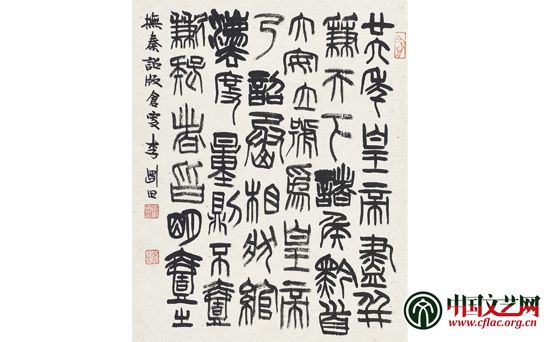 廿六年皇帝盡并
兼天下諸侯黔首
大安立號爲皇帝
乃詔丞相狀綰
灋度量則不壹
歉疑者皆明壹之
撫秦詔版 李剛田
中国文艺网
www.cflac.org.cn